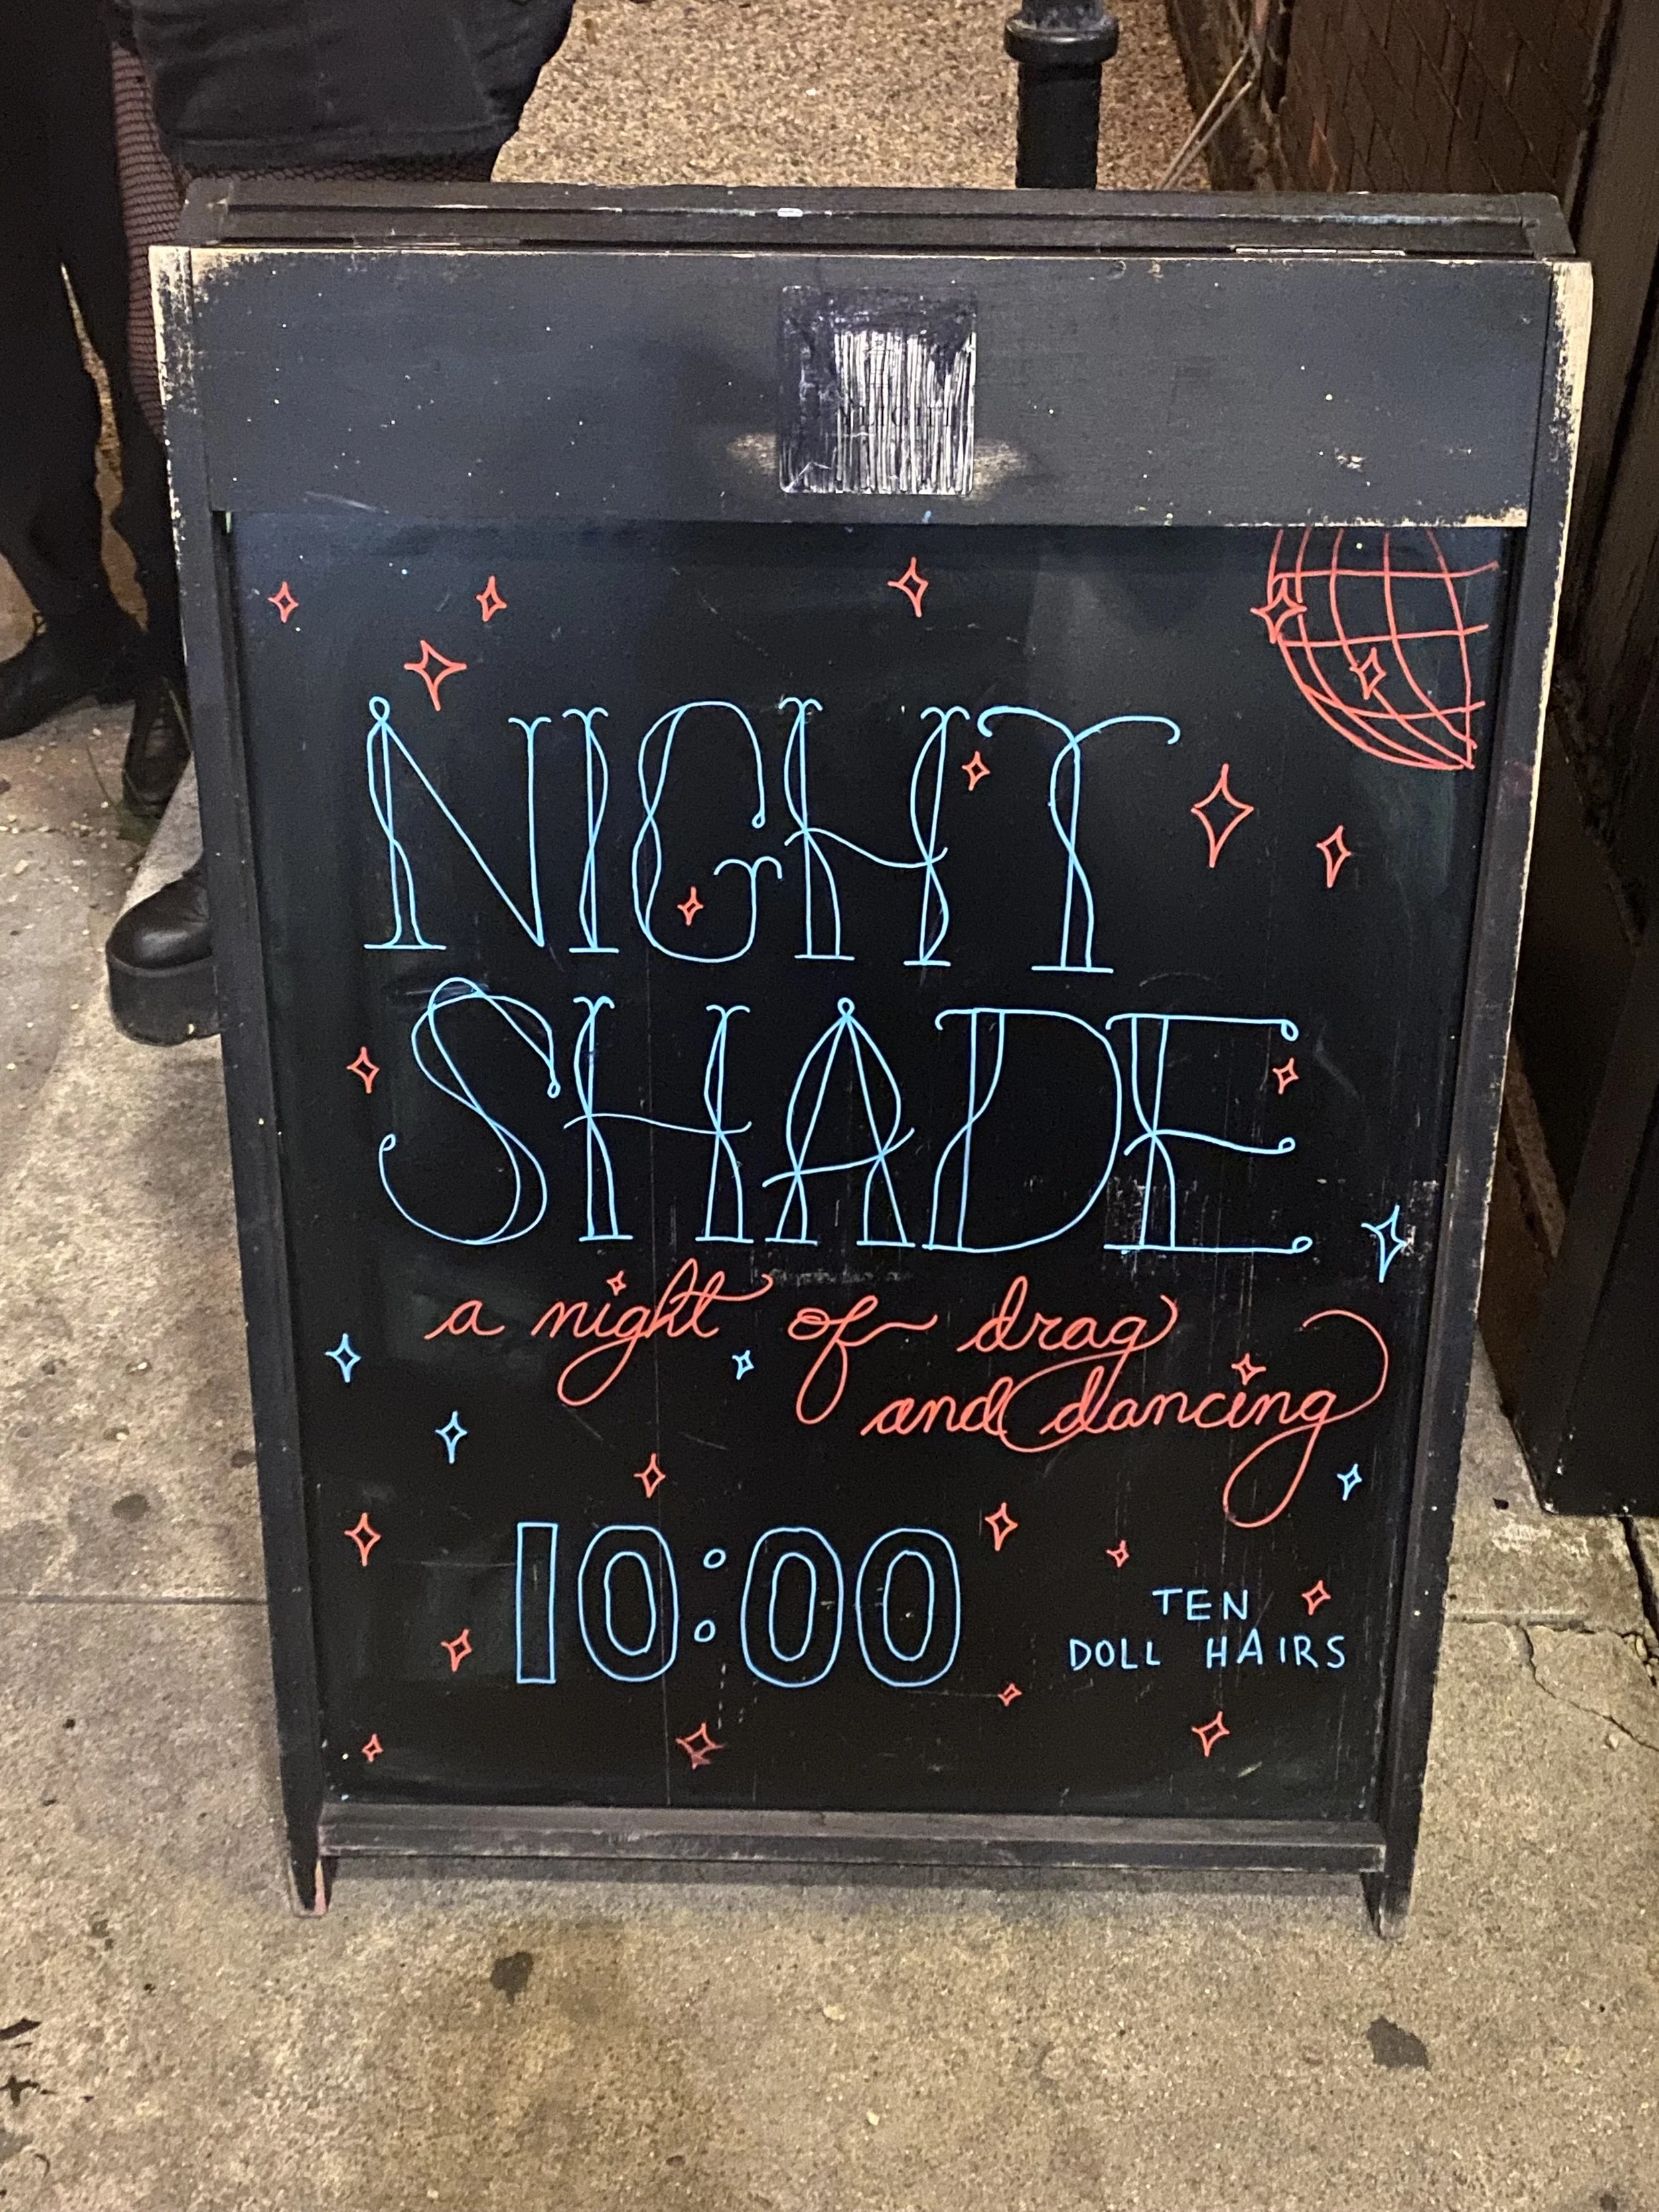 NIGHT
SHADE
a night of drag
and dancing
10:00
TEN
DOLL HAIRS